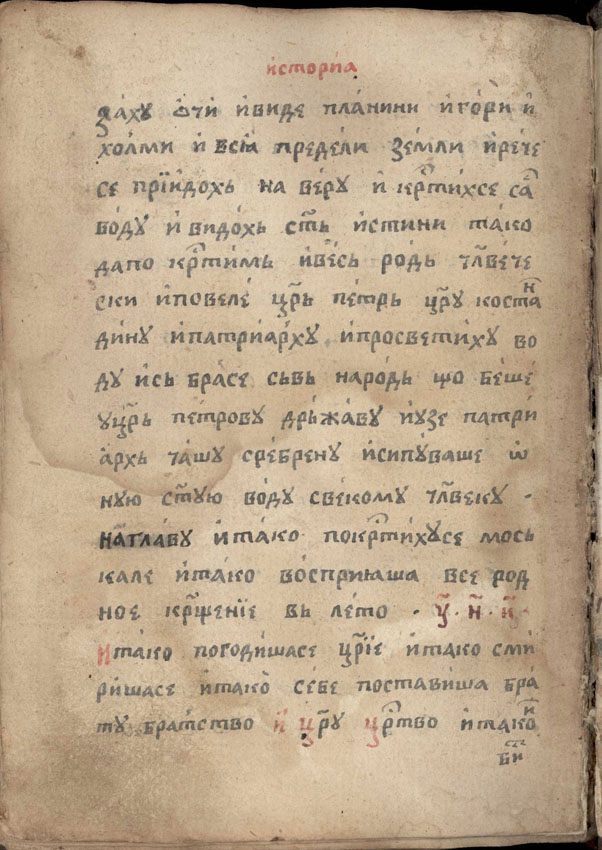 исторіа
заху ѻчи и виде планини и гори и
холми и всіа предели земли и рече
се пріидохь на веру и кр҃тихсе са
воду и видохь ст҃ь истини тако
да по кр҃тимь и весь родь чл҃вече
ски и повеле цр҃ь петрь цр҃у коста н
дину и патриарху и просветиху во
ду и сь брасе сьвь народь що беше
у цр҃ь петрову дрьжаву и узе патри
архь чашу сребрену и сипуваше ѡ
ную ст҃ую воду свекому чл҃веку ·
на главу и тако покр҃тихусе мось
кале и тако восприаша все род
ное кр҃щеніе вь лето · у҃ · н҃ · и҃ ·
И тако погодишасе цр҃іе и тако сми
ришасе и тако себе поставиша бра
ту братство и цр҃у цр҃тво и тако и
бист